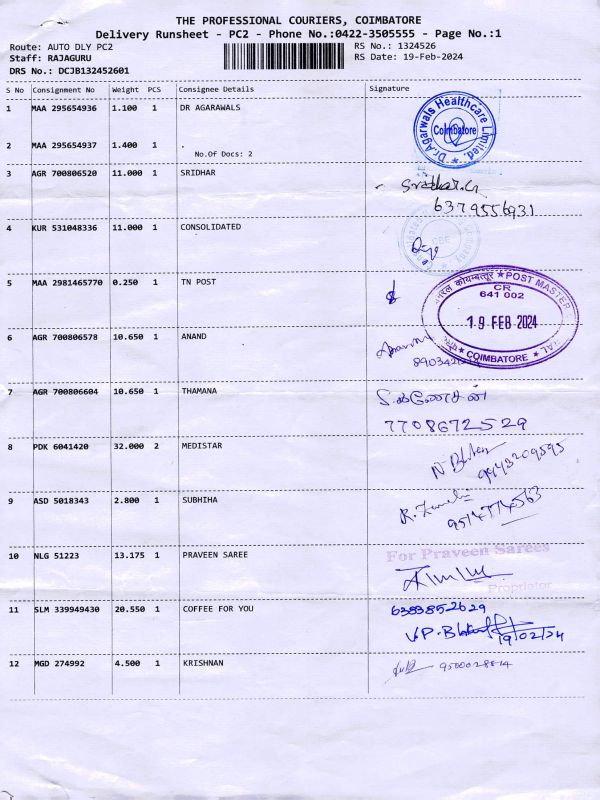 THE PROFESSIONAL COURIERS, COIMBATORE
Delivery Runsheet - PC2 - Phone No.:0422-3505555 - Page No.:1
Route: AUTO DLY PC2 RS No.: 1324526
Staff: RAJAGURU RS Date: 19-Feb-2024
DRS No.: DCJB132452601
S No Consignment No Weight PCS Consignee Details Signature
1 MAA 295654936 1.100 1 DR AGARAWALS
Dr.Agarwals Healthcare Limited.
Coimbatore
2 MAA 295654937 1.400 1 .
No.Of Docs: 2
3 AGR 700806520 11.000 1 SRIDHAR
Sridhar.G
6379556931
4 KUR 531048336 11.000 1 CONSOLIDATED
CBE
5 MAA 2981465770 0.250 1 TN POST
POST MASTER
CR
641 002
19 FEB 2024
COIMBATORE
6 AGR 700806578 10.650 1 ANAND
7 AGR 700806604 10.650 1 THAMANA
7708672529
8 PDK 6041420 32.000 2 MEDISTAR
9943209595
9 ASD 5018343 2.800 1 SUBHIHA
9514774563
10 NLG 51223 13.175 1 PRAVEEN SAREE
For Praveen Sarees
Proprietor
11 SLM 339949430 20.550 1 COFFEE FOR YOU
6383852629
19/02/24
12 MGD 274992 4.500 1 KRISHNAN
9500028814